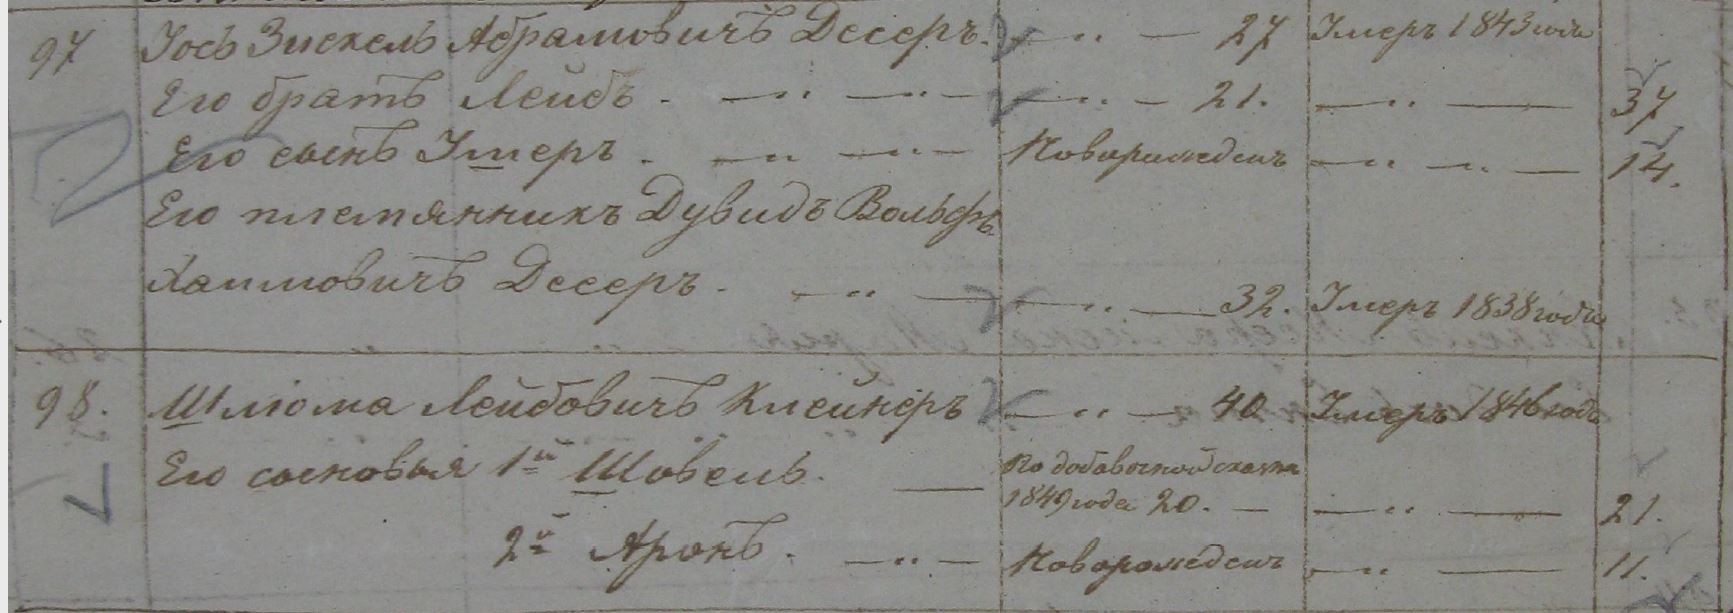 97 Iось Зискель Абрамовичъ Десеръ. — " — 27 Умеръ 1843 года
Его братъ Лейбъ. — " — " — — " — 21. — " — 37
Его сынъ Умеръ. — " — " — Новорожденъ — " — " — 14.
Его племянникъ Дувидъ Вольфъ
Хаимовичъ Десеръ. — " — — " — 32. Умеръ 1838 года
98. Шлиома Лейбовичъ Клейнеръ — " — 40 Умеръ 1846 года
Его сыновья 1й Шовель. — По добавочной сказки
1849 года 20. — — " — 21.
2й Аронъ. — " — Новорожденъ — " — 11.